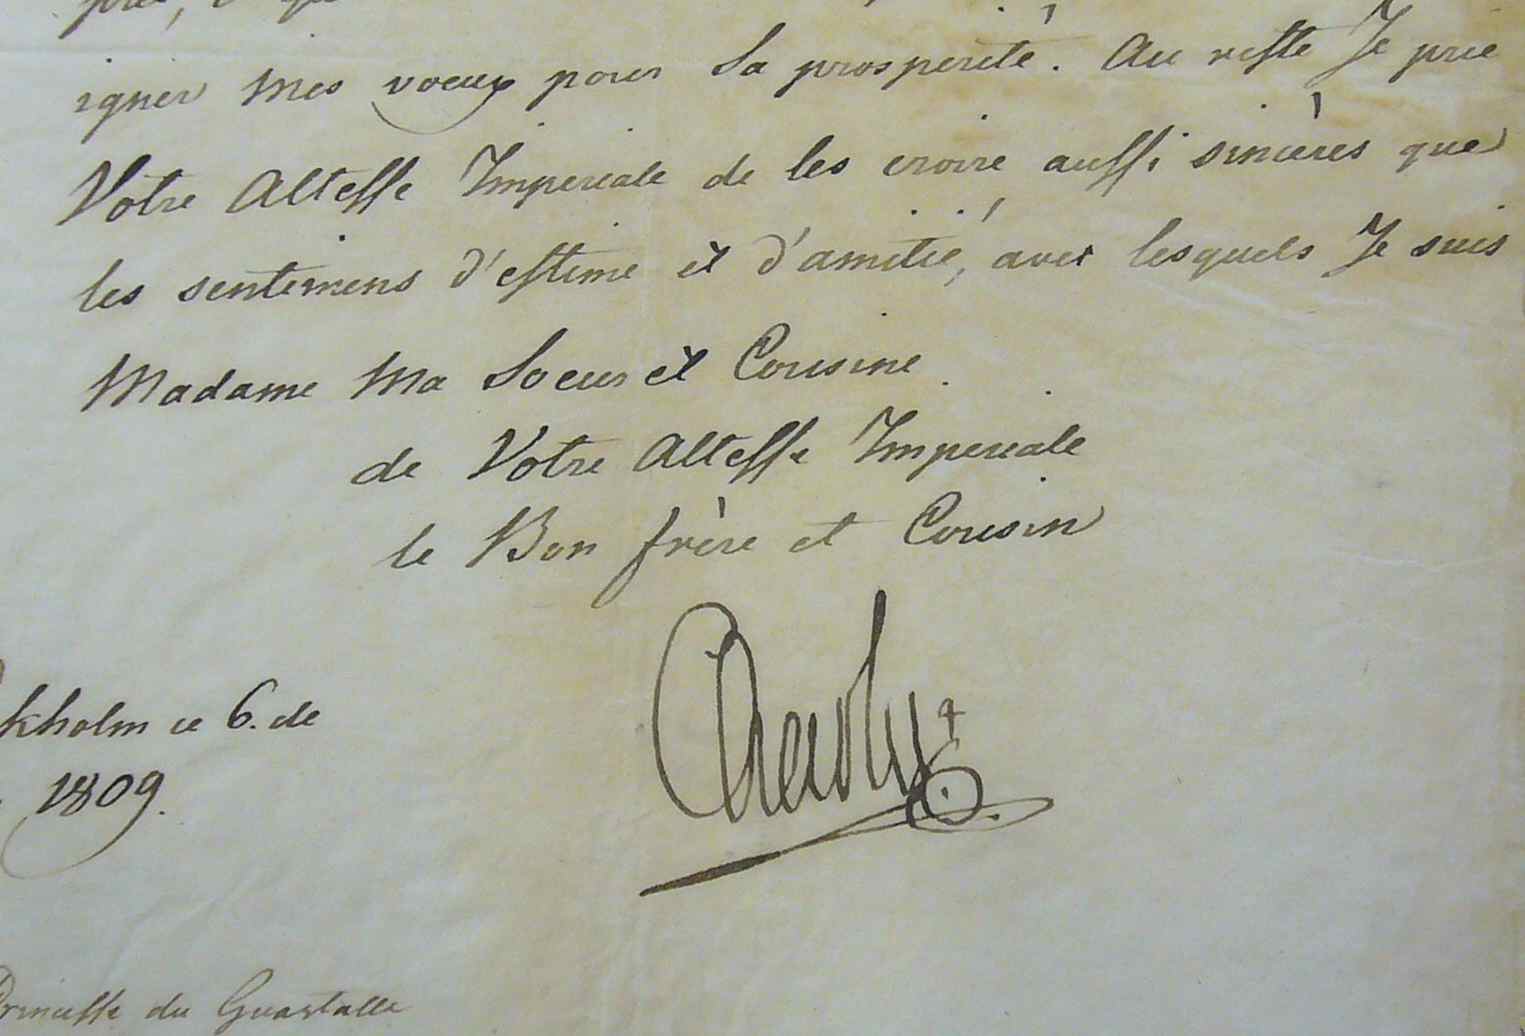 igner mes voeux pour Sa prosperité. Au reste Je prie
Votre Altesse Imperiale de les croire aussi sincères que
les sentimens d'estime et d'amitié, avec lesquels Je suis
Madame Ma Soeur et Cousine
de Votre Altesse Imperiale
le Bon frère et Cousin
Charles
kholm ce 6. de
1809.
Princesse de Guastalle